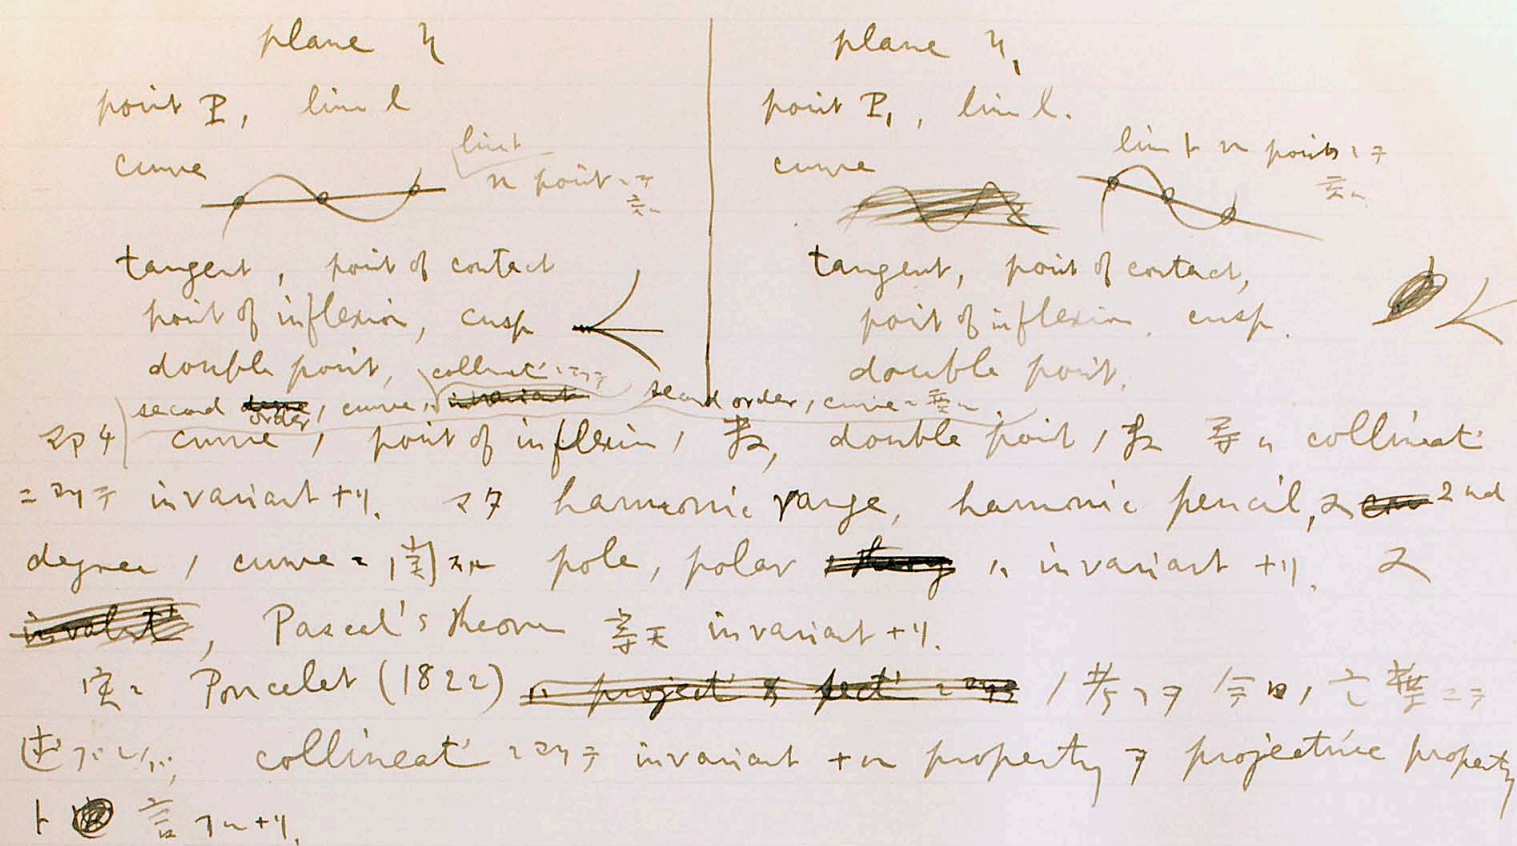 plane η
point P, line l
curve
line ト n point ニテ
交ハル
tangent, point of contact
point of inflexion, cusp
double point,
plane η₁
point P₁, line l₁
curve
line ト n points ニテ
交ハル
tangent, point of contact,
point of inflexion, cusp.
double point.
collineat ニヨリテ
second order ノ curve ハ second order ノ curve ニ
即チ curve ノ point of inflexion ノ数, double point ノ数 等ハ collineat
ニヨリテ invariant ナリ. 又 harmonic range, harmonic pencil, 又 2nd
degree ノ curve ニ関スル pole, polar ハ invariant ナリ. 又
Pascal's theorem 等モ invariant ナリ.
実ニ Poncelet (1822) ノ考ヘヲ今日ノ言葉ニテ
述ブレバ, collineat ニヨリテ invariant ナル property ヲ projective property
ト言フナリ.